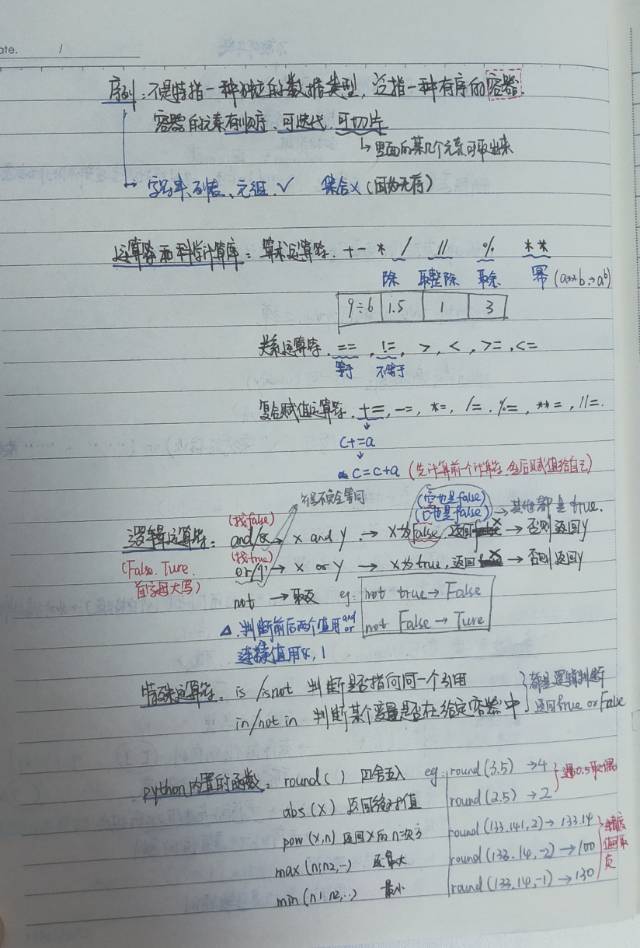 ate. /
序列：不是特指一种独立的数据类型，泛指一种有序的容器.
容器的元素有顺序、可迭代、可切片
↳ 里面的某几个元素可取出来
→ 字符串、列表、元组 ✓ 集合×(因为无序)
运算符和科学计算库：算术运算符. + - * / // % **
除 取整除 取余 幂 (a**b → aᵇ)
9÷6 1.5 1 3
关系运算符. == , != , > , < , >= , <=
等于 不等于
复合赋值运算符. += , -= , *= , /= , %= , **= , //= .
↓
c+=a
↓
c=c+a (先计算前一个计算符 然后赋值给自己)
不完全等同
(空也是false)
(找false) (0也是false) → 其他都是true.
逻辑运算符： and/& → x and y → x为false, 返回x → 否则返回y
(False. Ture. (找true)
首字母大写) or/| → x or y → x为true, 返回x → 否则返回y
not → 取反 eg: not true → False
△ 判断前后两个值用and or not False → Ture
连接值用&, |
特殊运算符. is / isnot 判断是否指向同一个引用 都是逻辑判断
in/not in 判断某个变量是否在给定容器中 返回True or False
python内置的函数：round( ) 四舍五入 eg: round(3.5) → 4 遇0.5取偶
abs(x) 返回绝对值 round(2.5) → 2
pow(x,n) 返回x的n次方 round(133.141,2) → 133.14
max(n1,n2,…) 最大 round(133.14,-2) → 100
min(n1,n2,…) 最小 round(133.14,-1) → 130